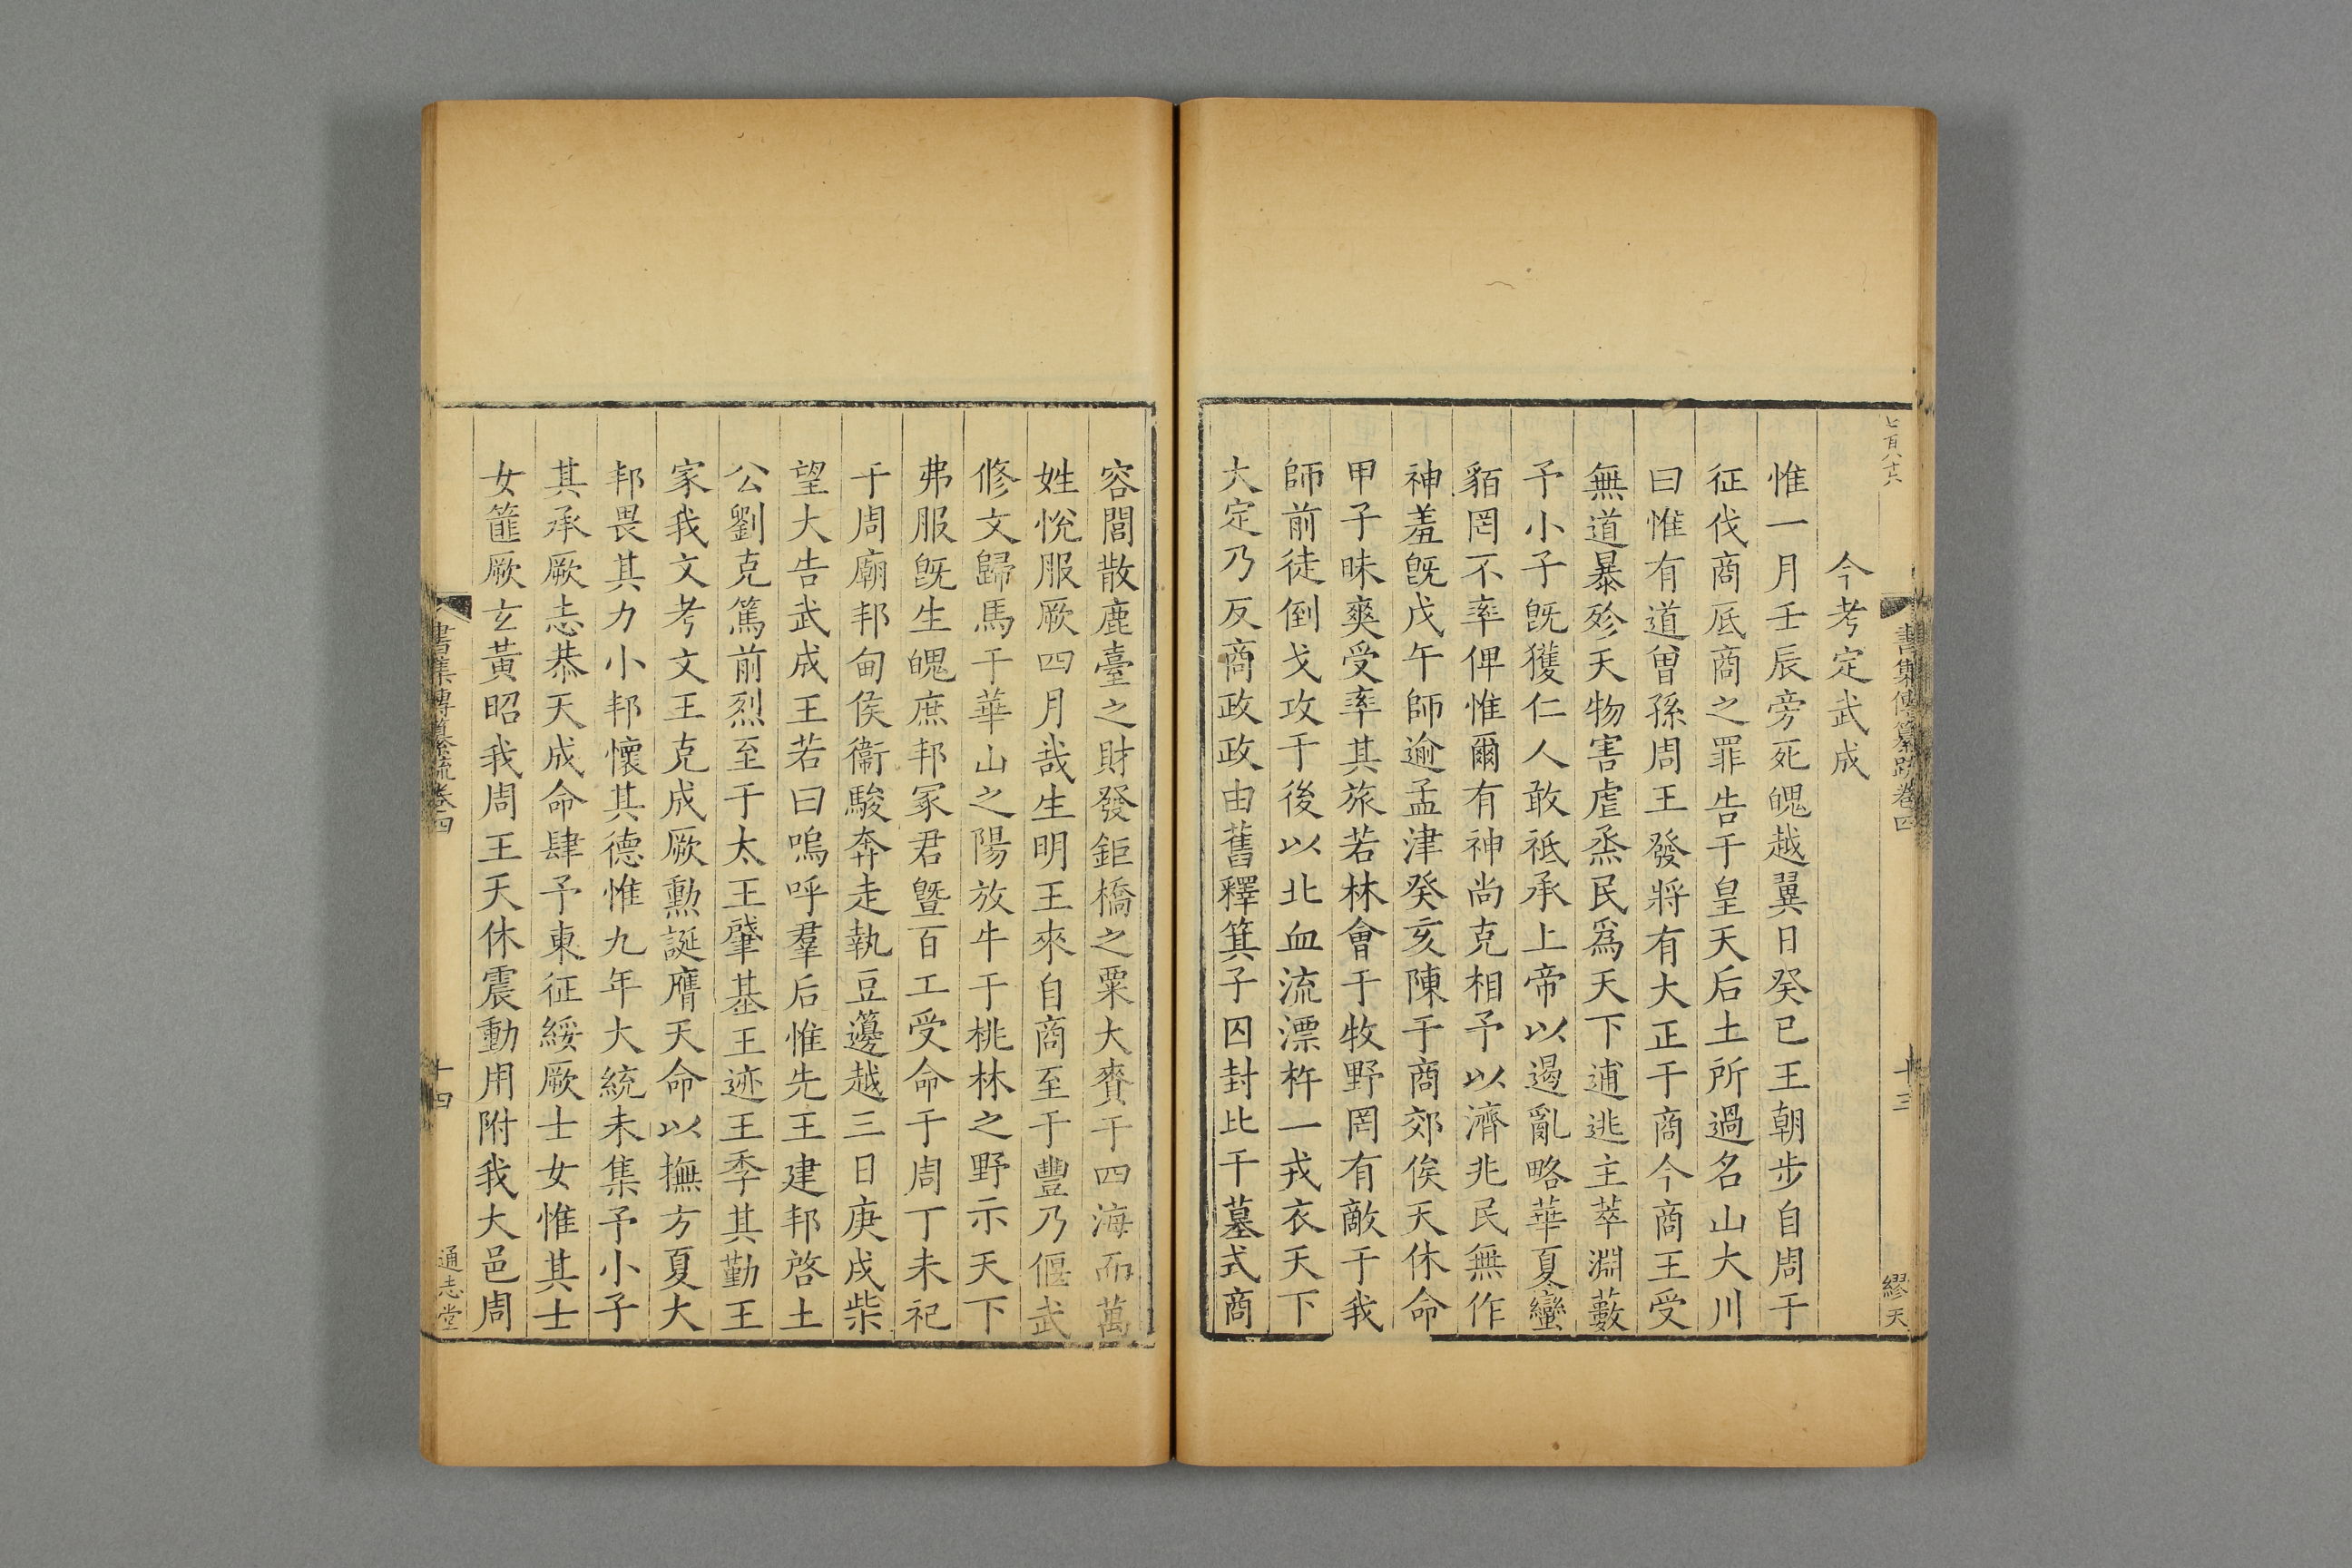 書集傳纂疏卷四
十三
繆天
今考定武成
惟一月壬辰旁死魄越翼日癸巳王朝步自周于
征伐商底商之罪告于皇天后土所過名山大川
曰惟有道曾孫周王發將有大正于商今商王受
無道暴殄天物害虐烝民爲天下逋逃主萃淵藪
予小子旣獲仁人敢祗承上帝以遏亂略華夏蠻
貊罔不率俾惟爾有神尚克相予以濟兆民無作
神羞旣戊午師逾孟津癸亥陳于商郊俟天休命
甲子昧爽受率其旅若林會于牧野罔有敵于我
師前徒倒戈攻于後以北血流漂杵一戎衣天下
大定乃反商政政由舊釋箕子囚封比干墓式商
容閭散鹿臺之財發鉅橋之粟大賚于四海而萬
姓悅服厥四月哉生明王來自商至于豐乃偃武
修文歸馬于華山之陽放牛于桃林之野示天下
弗服旣生魄庶邦冢君曁百工受命于周丁未祀
于周廟邦甸侯衞駿奔走執豆籩越三日庚戌柴
望大告武成王若曰嗚呼羣后惟先王建邦啓土
公劉克篤前烈至于太王肇基王迹王季其勤王
家我文考文王克成厥勲誕膺天命以撫方夏大
邦畏其力小邦懷其德惟九年大統未集予小子
其承厥志恭天成命肆予東征綏厥士女惟其士
女篚厥玄黃昭我周王天休震動用附我大邑周
書集傳纂疏卷四
十四
通志堂